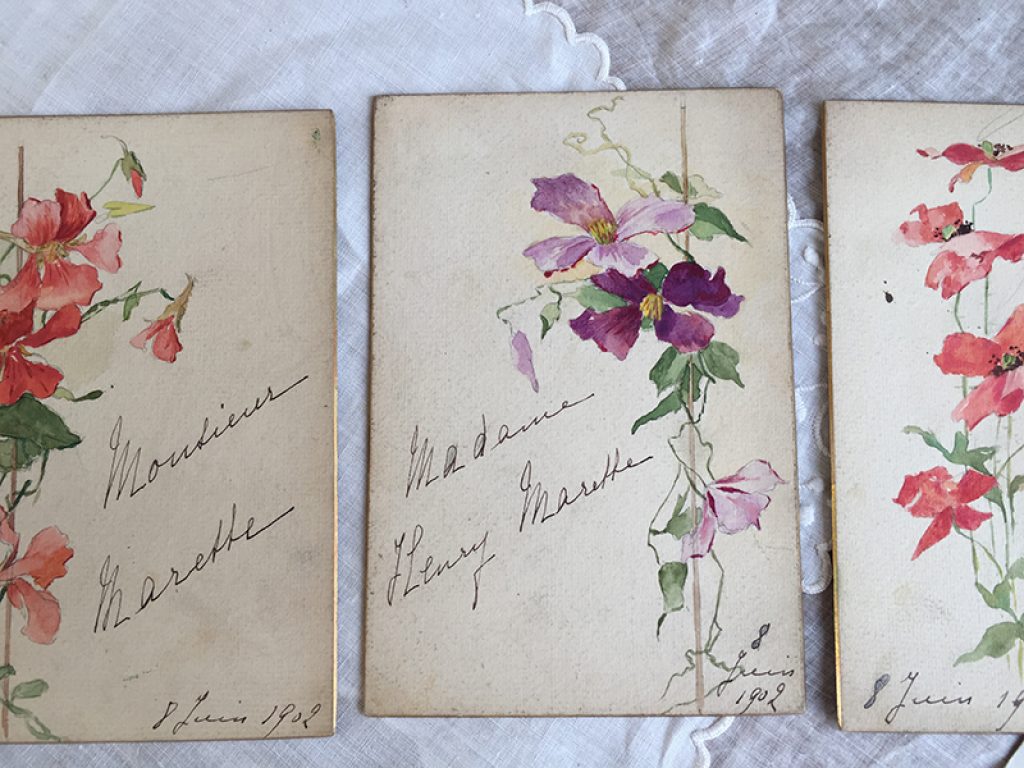 Monsieur
Marette
8 Juin 1902
Madame
Henry Marette
8
Juin
1902
8 Juin